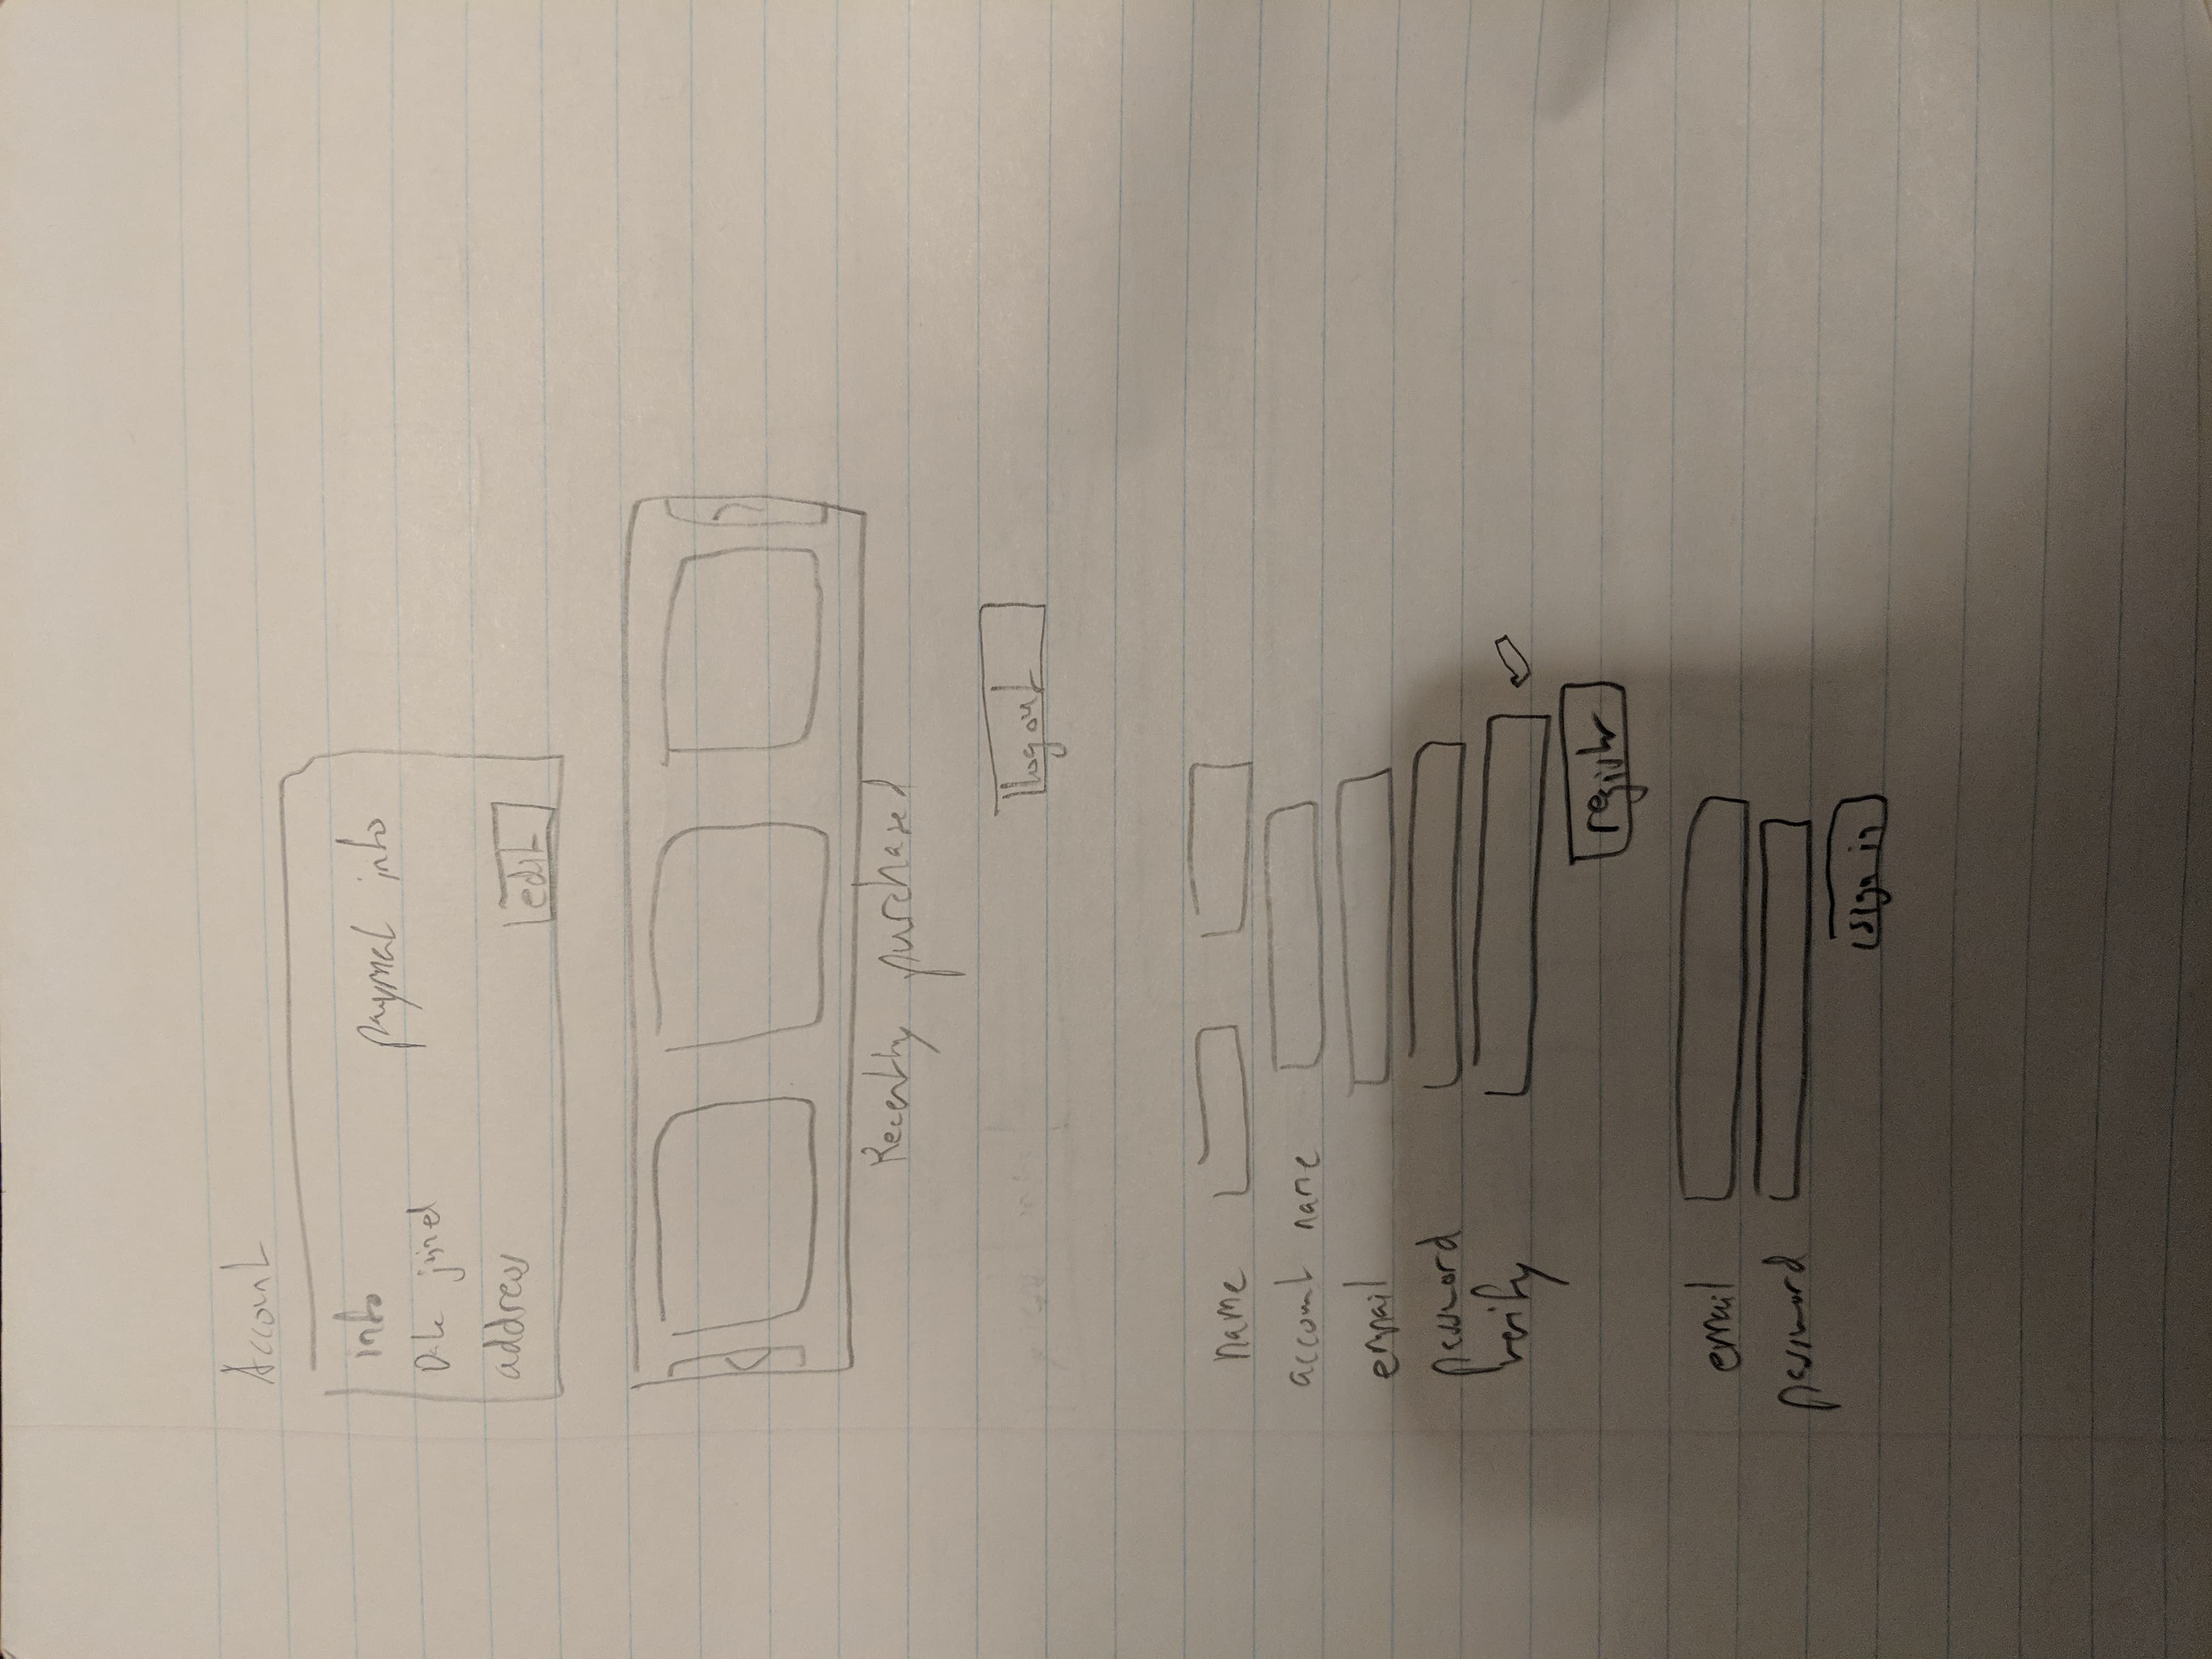 Account
info payment info
Date joined
address edit
Recently purchased
logout
name
account name
email
password
verify
register
email
password
sign in